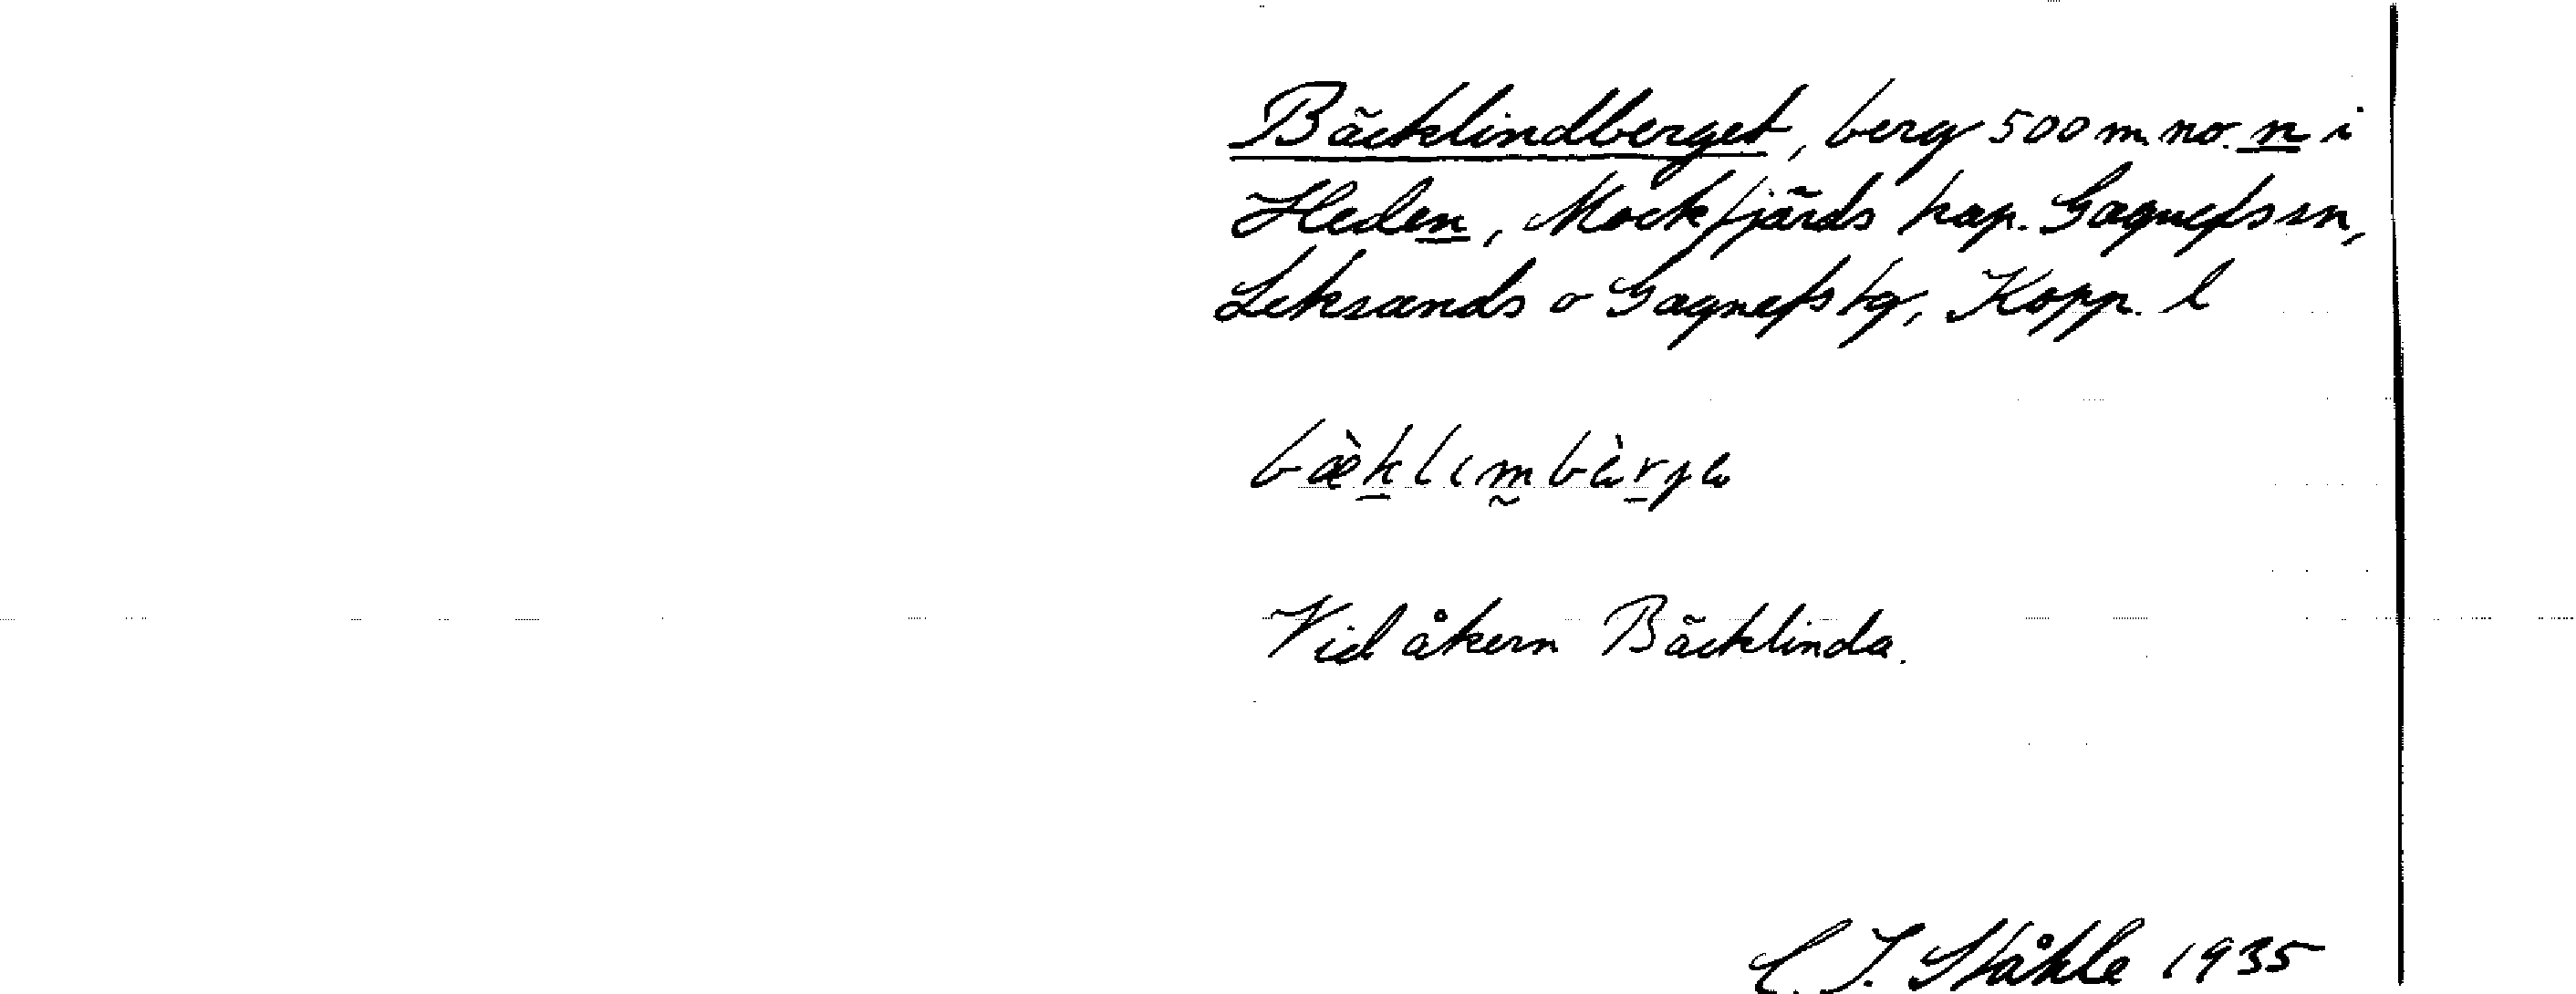 Bäcklindberget, berg 500 m no. n i
Heden, Mockfjärds kap. Gagnefs sn,
Leksands o Gagnefs tg, Kopp. l
Vid åkern Bäcklinda.
C. I. Ståhle 1935